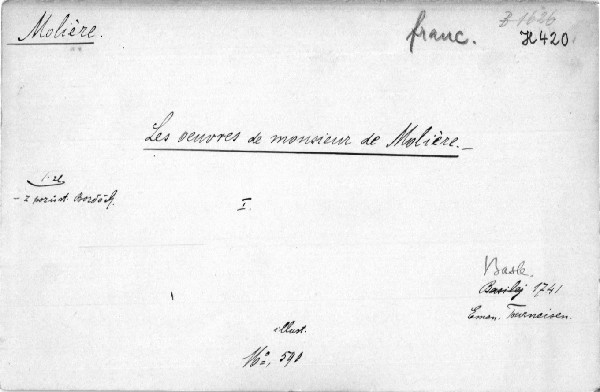 Molière.
franc.
Z 1626
H420
Les oeuvres de monsieur de Molière.
- z pozůst.
I.
Basle.
Basilej 1741
Eman. Tourneisen.
illust.
16°, 590